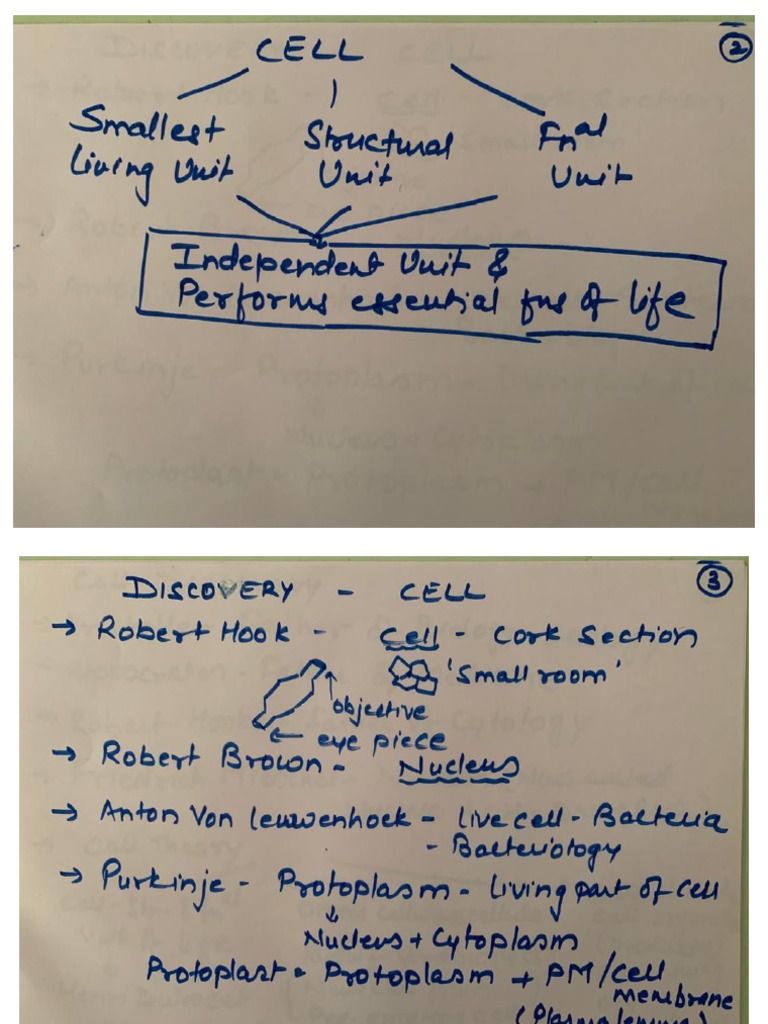 CELL
2
Smallest Living Unit
Structural Unit
Fnal Unit
Independent Unit &
Performs essential fns of life
3
DISCOVERY - CELL
→ Robert Hook - Cell - Cork Section
'Small room'
objective
eye piece
→ Robert Brown - Nucleus
→ Anton Von Leuwenhoek - live cell - Bacteria
- Bacteriology
→ Purkinje - Protoplasm - Living part of cell
Nucleus + Cytoplasm
Protoplast = Protoplasm + PM/cell
membrane
(Plasmalemma)